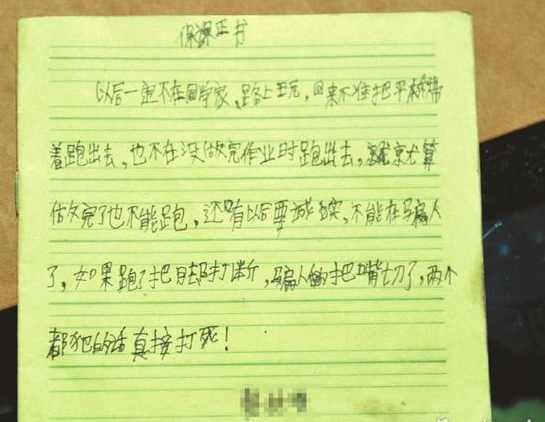 保课正书
以后一定不在同学家、路上玩，回来不准把平板带
着跑出去，也不在没做完作业时跑出去，就算
做完了也不能跑，还有以后要诚实，不能在骗人
了，如果跑了把脚打断，骗人的把嘴切了，两个
都犯的话直接打死！